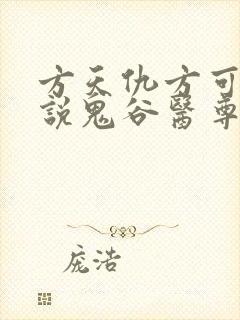 方天仇方可
說鬼谷醫尊
庞浩